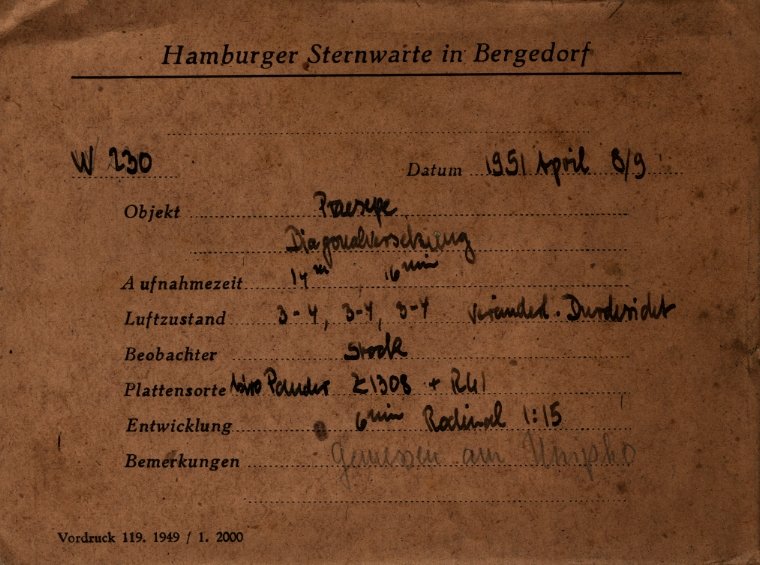 Hamburger Sternwarte in Bergedorf
W 230 Datum 1951 April 8/9
Objekt Praesepe
Diagonalversetzung
Aufnahmezeit 14ᵐ 16ᵐⁱⁿ
Luftzustand 3-4, 3-4, 3-4 veränderl. Durchsicht
Beobachter Stock
Plattensorte
Entwicklung 6ᵐⁱⁿ Rodinal 1:15
Bemerkungen Gemessen am
Vordruck 119. 1949 / 1. 2000